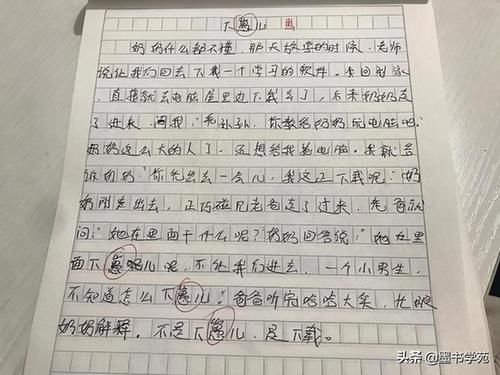 下崽儿 出
奶奶什么都不懂，那天放学的时候，老师
说让我们回去下载一个学习的软件。我回到家
，直接就去电脑屋里边下载去了，后来奶奶走
了进来，问我：“乖孙子，你教教奶奶玩电脑吗？”
奶奶这么大的人了，还想给我抢电脑。我就告
诉奶奶：“你先出去一会儿，我这正下载呢！”奶
奶刚走出去，正巧碰见老爸走了过来，老爸就
问：“她在里面干什么呢？”奶奶回答说：“她在里
面下崽儿呢，不让我们进去，一个小男生，
不知道怎么下崽儿！”爸爸听完哈哈大笑，忙跟
奶奶解释，不是下崽儿，是下载。
头条 @墨书学苑